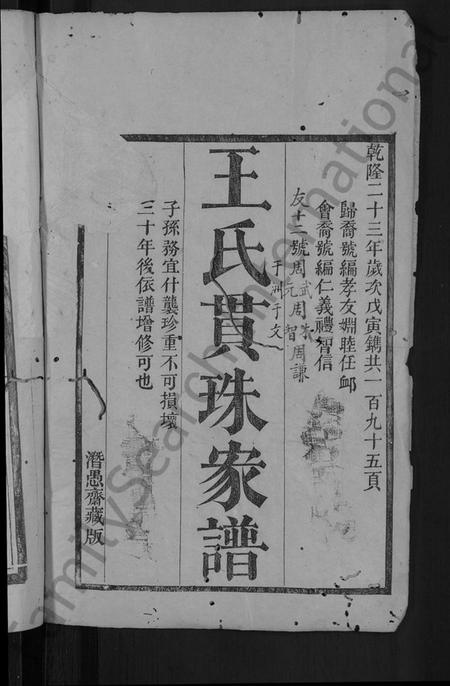 乾隆二十三年歲次戊寅鐫共一百九十五頁
歸裔號編孝友婣睦任卹
會裔號編仁義禮智信
友十二號周武周
元周智周謙
于洲于文
王氏貫珠家譜
子孫務宜什襲珍重不可損壞
三十年後依譜增修可也
潛愚齋藏版
FamilySearch International